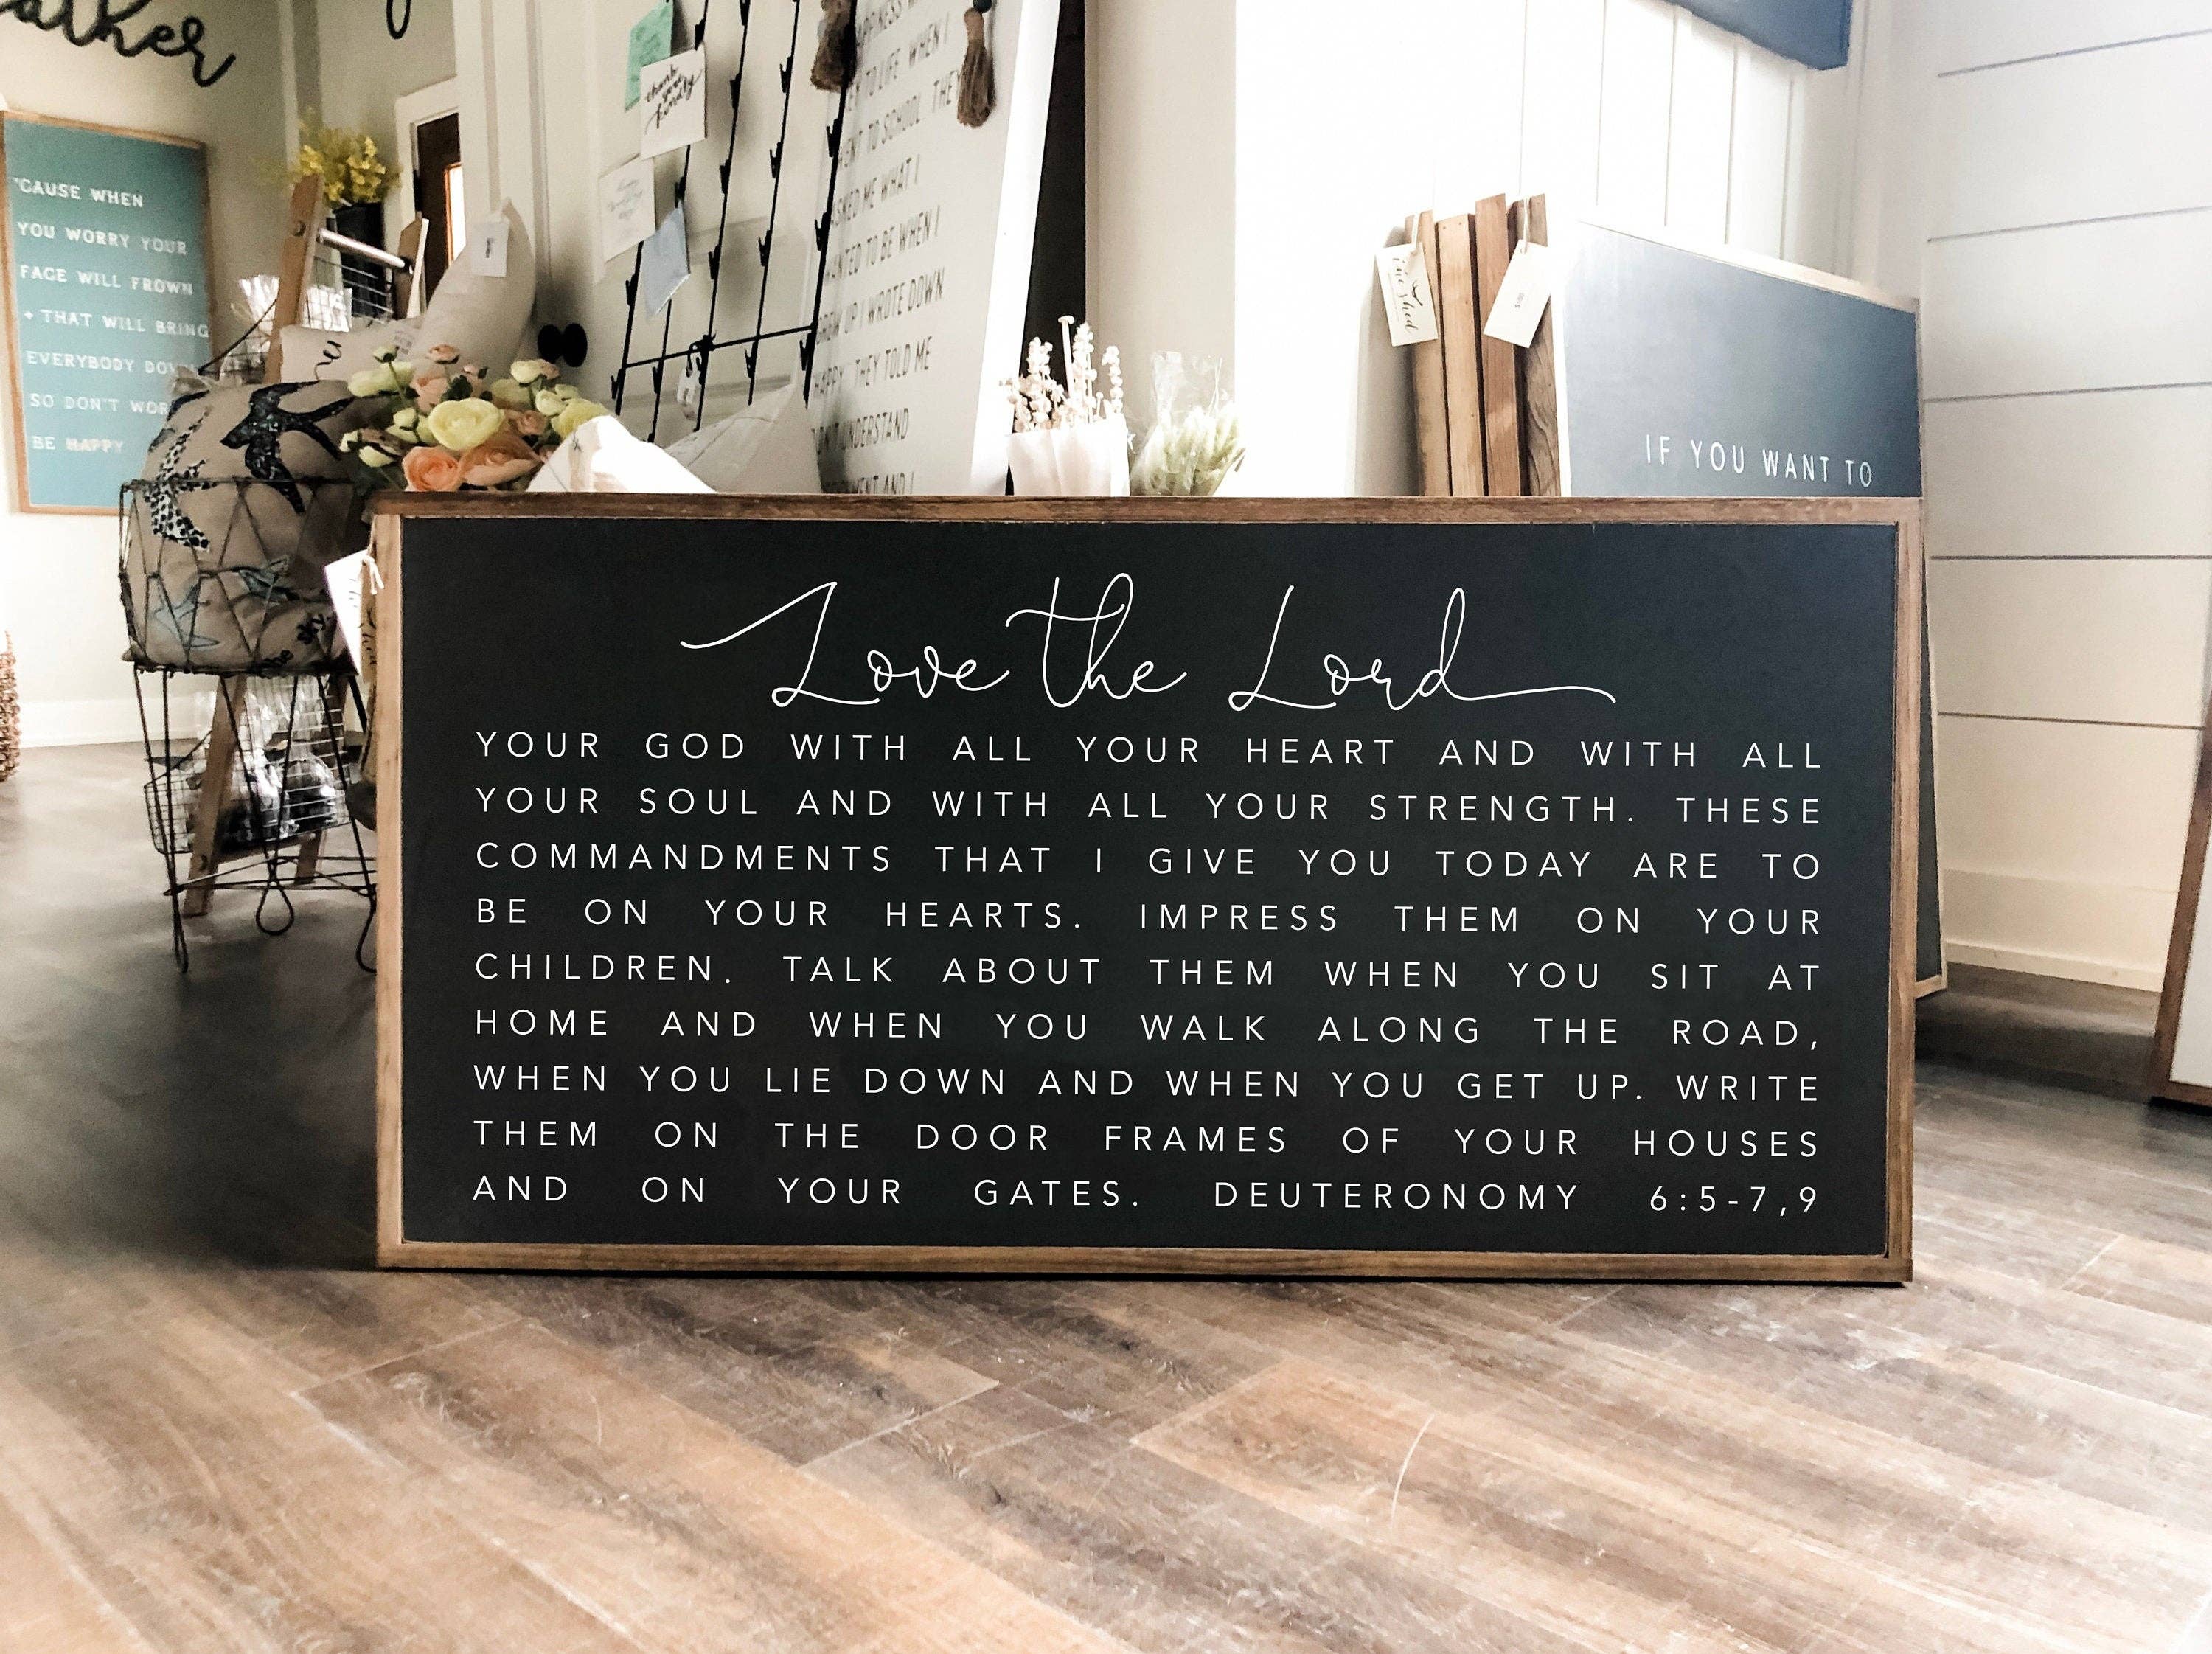 'CAUSE WHEN
YOU WORRY YOUR
FACE WILL FROWN
+ THAT WILL BRING
EVERYBODY
SO DON'T
BE HAPPY
thank
you
kindly
TO LIFE WHEN I
TO SCHOOL THEY
ME WHAT I
TO BE WHEN I
UP I WROTE DOWN
THEY TOLD ME
UNDERSTAND
AND I
IF YOU WANT TO
Love the Lord
YOUR GOD WITH ALL YOUR HEART AND WITH ALL
YOUR SOUL AND WITH ALL YOUR STRENGTH. THESE
COMMANDMENTS THAT I GIVE YOU TODAY ARE TO
BE ON YOUR HEARTS. IMPRESS THEM ON YOUR
CHILDREN. TALK ABOUT THEM WHEN YOU SIT AT
HOME AND WHEN YOU WALK ALONG THE ROAD,
WHEN YOU LIE DOWN AND WHEN YOU GET UP. WRITE
THEM ON THE DOOR FRAMES OF YOUR HOUSES
AND ON YOUR GATES. DEUTERONOMY 6:5-7,9